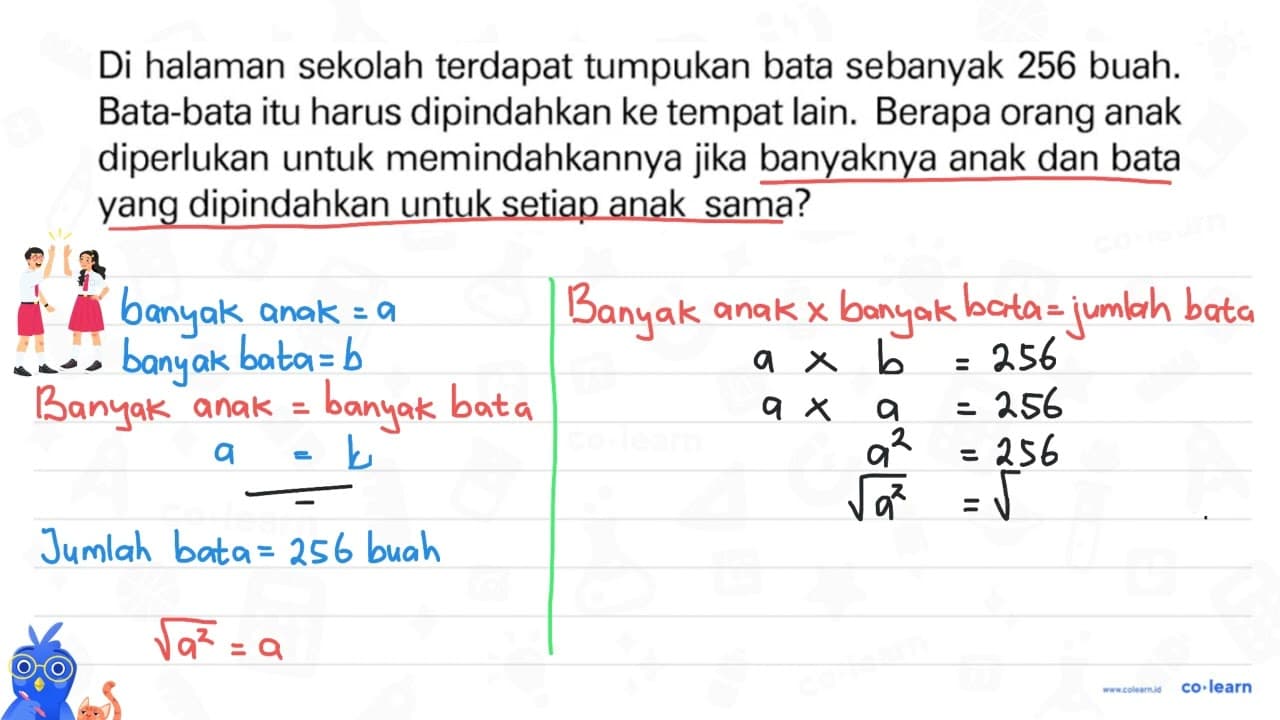 Di halaman sekolah terdapat tumpukan bata sebanyak 256 buah.
Bata-bata itu harus dipindahkan ke tempat lain. Berapa orang anak
diperlukan untuk memindahkannya jika banyaknya anak dan bata
yang dipindahkan untuk setiap anak sama?
banyak anak = a
banyak bata = b
Banyak anak = banyak bata
a = b
Jumlah bata = 256 buah
√a² = a
Banyak anak x banyak bata = jumlah bata
a x b = 256
a x a = 256
a² = 256
√a² = √
www.colearn.id co·learn